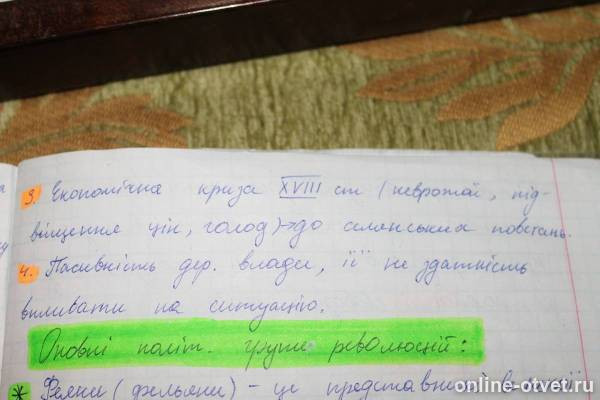 3. Економічна криза XVIII ст (неврожай, під-
віщення цін, голод)→до селянських повстань.
4. Пасивність дер. влади, її не здатність
впливати на ситуацію.
Оновні політ. групи революцій:
* (фельяни) - це представники
online-otvet.ru